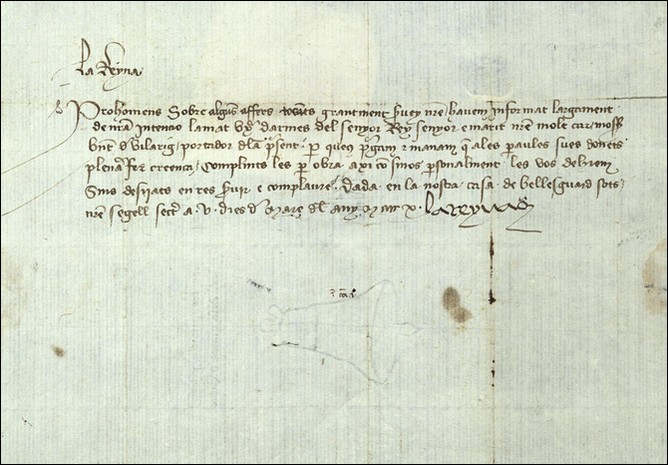 La Reyna
Prohomens Sobre alguns affers tocants grantment servey nre havem informat largament
de nra intencio lamat uxer darmes del senyor Rey senyor e marit nre molt car, moss
de Vilarig, portador dla psent. per queus pgam e manam q a les paraules sues donets
plenera fe e creenca, Complints les per obra axi co si nos psonalment les vos dehiem
Si'ns desijats en res servir e complaure. Dada en la nostra casa de bellesguard sots
nre segell secret a .v. dies de març del any Mil cccc x. La Reyna